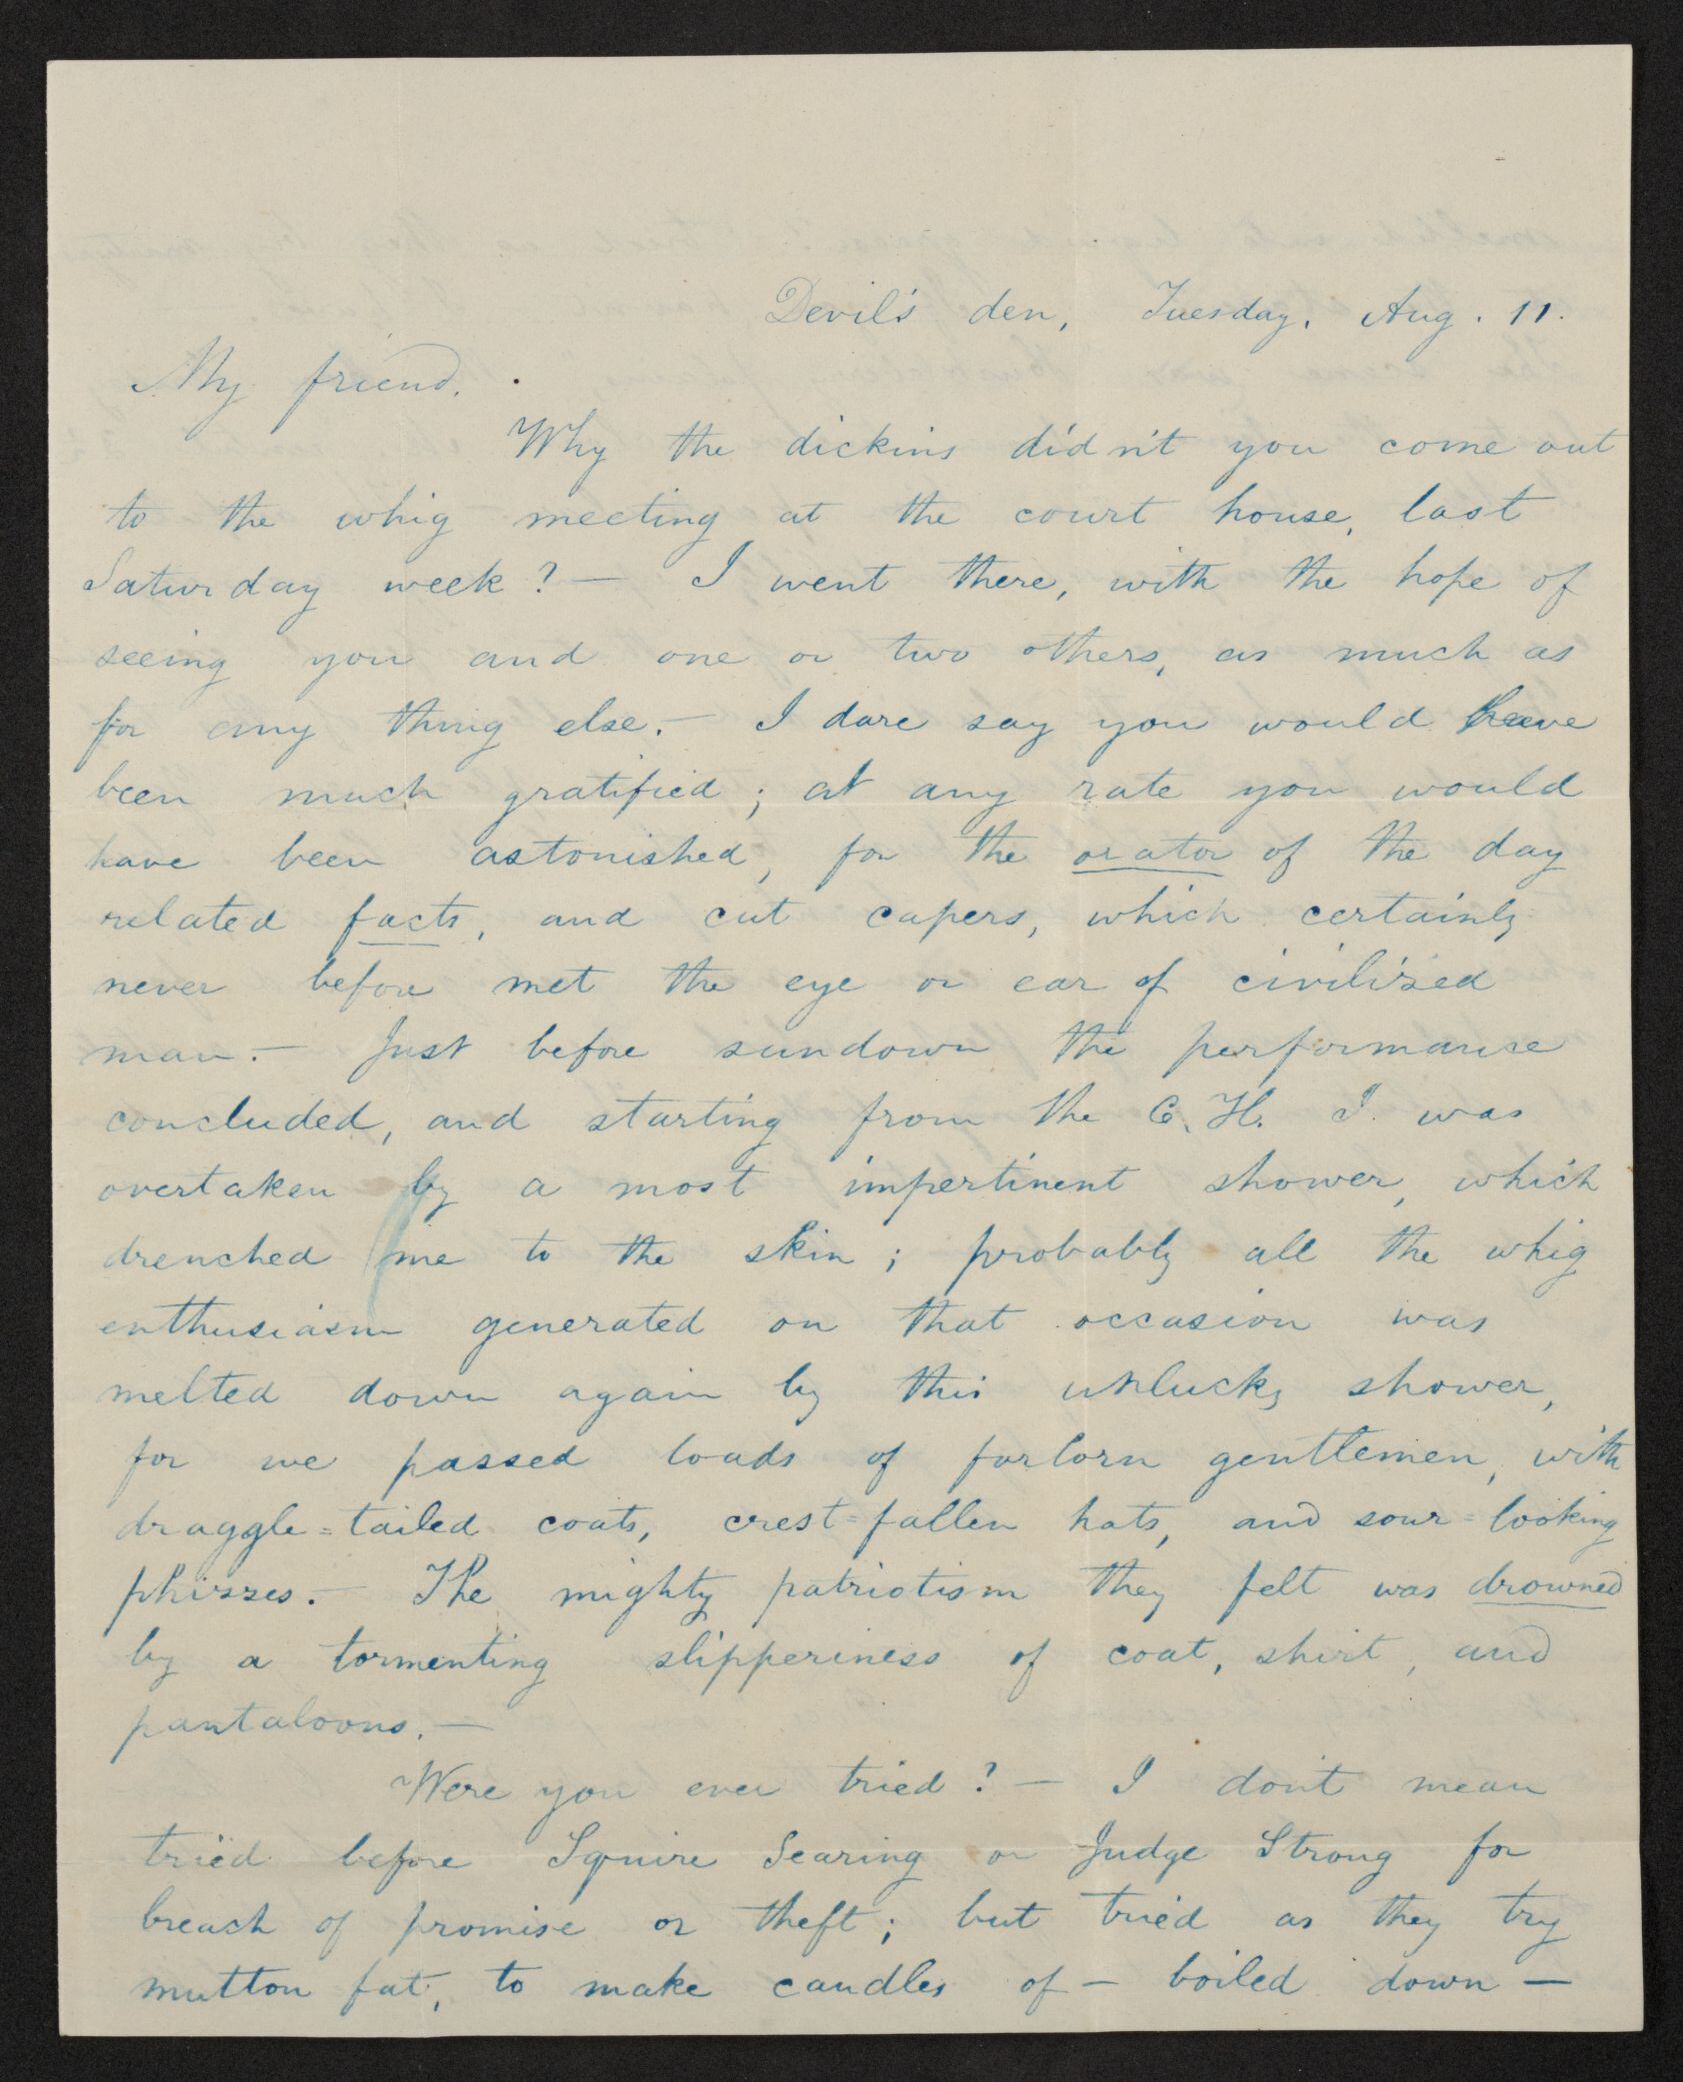 Devil's den, Tuesday, Aug. 11.
My friend.
Why the dickins didn't you come out
to the whig meeting at the court house, last
Saturday week? — I went there, with the hope of
seeing you and one or two others, as much as
for any thing else. — I dare say you would have
been much gratified; at any rate you would
have been astonished, for the orator of the day
related facts, and cut capers, which certainly
never before met the eye or ear of civilized
man. — Just before sundown the performance
concluded, and starting from the C. H. I was
overtaken by a most impertinent shower, which
drenched me to the skin; probably all the whig
enthusiasm generated on that occasion was
melted down again by this unlucky shower,
for we passed loads of forlorn gentlemen, with
draggle=tailed coats, crest=fallen hats, and sour=looking
phizzes. — The mighty patriotism they felt was drowned
by a tormenting slipperiness of coat, shirt, and
pantaloons. —
Were you ever tried? — I don't mean
tried before Squire Searing or Judge Strong for
breach of promise or theft; but tried as they try
mutton fat, to make candles of — boiled down —